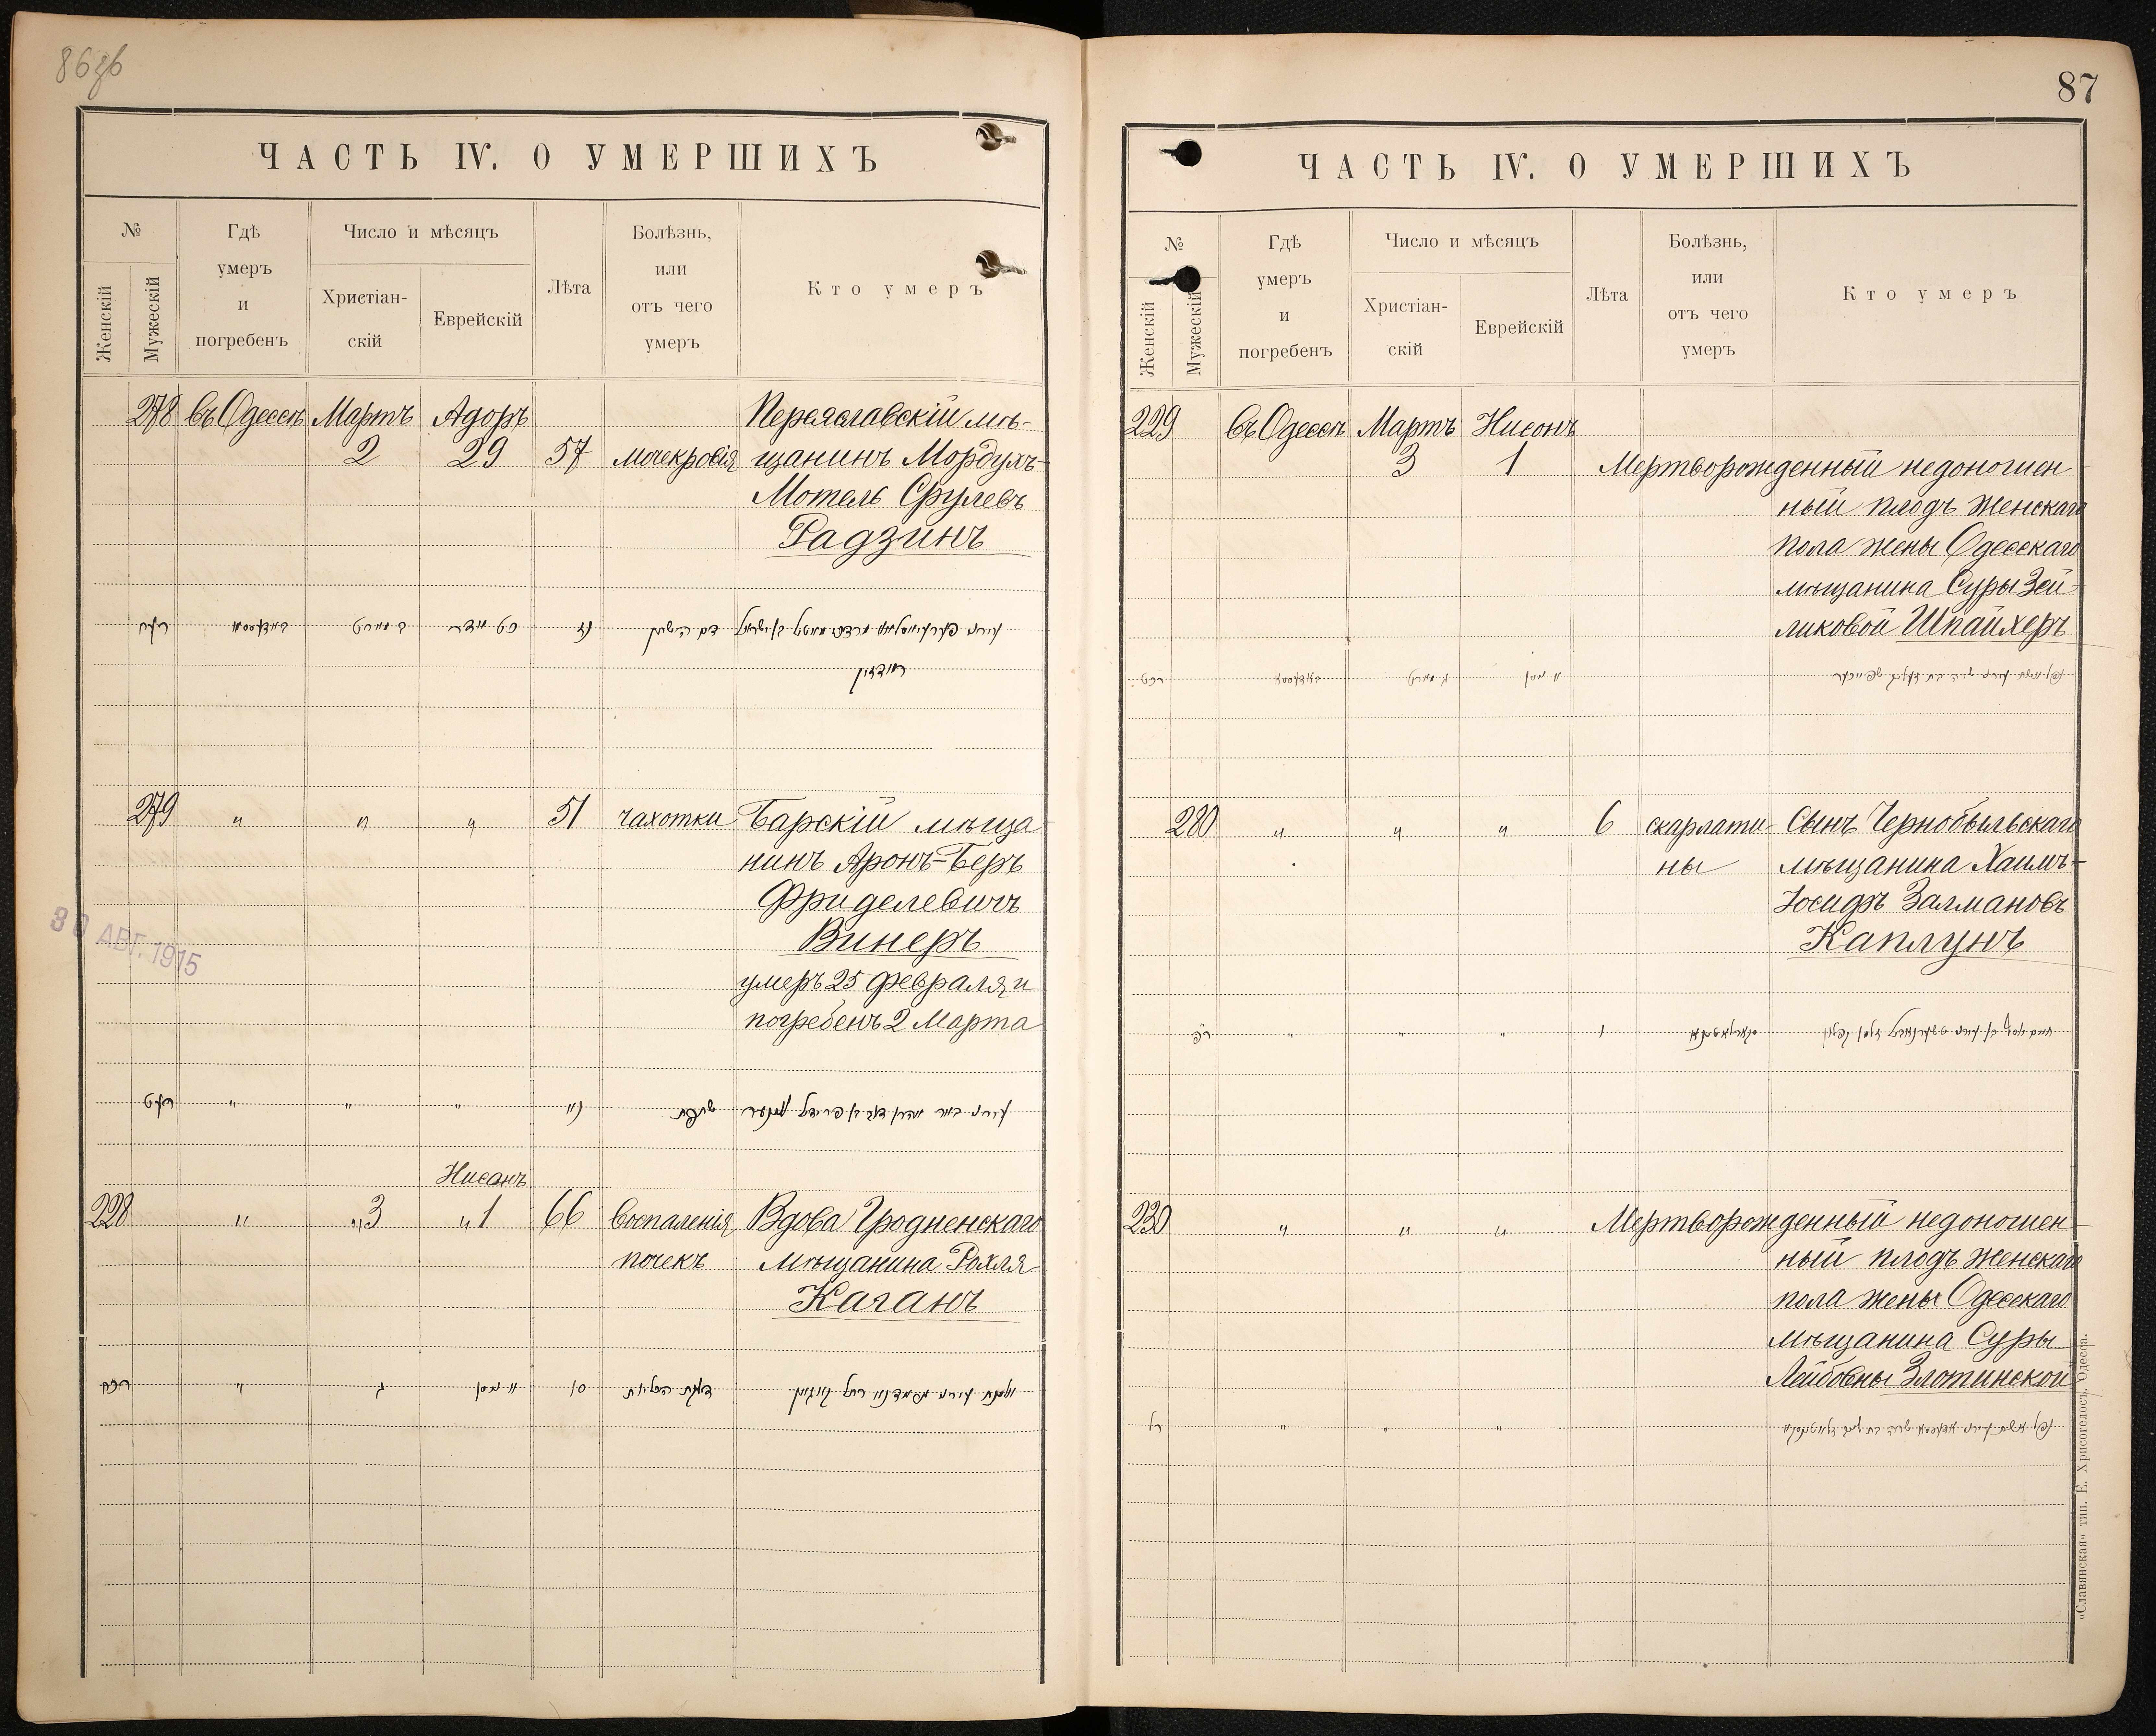 86зв
ЧАСТЬ IV. О УМЕРШИХЪ
№
Женскій
Мужескій
Гдѣ
умеръ
и
погребенъ
Число и мѣсяцъ
Христіан-
скій
Еврейскій
Лѣта
Болѣзнь,
или
отъ чего
умеръ
Кто умеръ
278 въ Одессѣ Мартъ Адоръ Переяславскій мѣ-
2 29 57 мочекровія щанинъ Мордухъ-
Мотель Срулевъ
Радзинъ
רעח באדעססא ב מארט כט אדר נז
ראדזין
279 " " " 51 чахотки Барскій мѣща
нинъ Аронъ-Беръ
Фриделевичъ
Винеръ
умеръ 25 февраля и
погребенъ 2 Марта
30 АВГ. 1915
רעט " " " שחפת
Нисанъ
228 " "3 "1 66 воспаленія Вдова Гродненскаго
почекъ мѣщанина Рохля
Каганъ
רכח " ג א ניסן דלקת הכליות
87
ЧАСТЬ IV. О УМЕРШИХЪ
№
Женскій
Мужескій
Гдѣ
умеръ
и
погребенъ
Число и мѣсяцъ
Христіан-
скій
Еврейскій
Лѣта
Болѣзнь,
или
отъ чего
умеръ
Кто умеръ
229 въ Одессѣ Мартъ Нисонъ
3 1 Мертворожденный недоношен
ный плодъ женскаго
пола жены Одесскаго
мѣщанина Суры Зей-
ликовой Шпайхеръ
רכט באדעססא ג מארט א ניסן
280 " " " 6 скарлати- Сынъ Чернобыльскаго
ны мѣщанина Хаимъ-
Іосифъ Залмановъ
Каплунъ
רפ " " " ו
230 " " " Мертворожденный недоношен-
ный плодъ женскаго
пола жены Одесскаго
мѣщанина Суры
Лейбовны Злотинской
רל " " "
„Славянская“ тип. Е. Хрисогелосъ. Одесса.